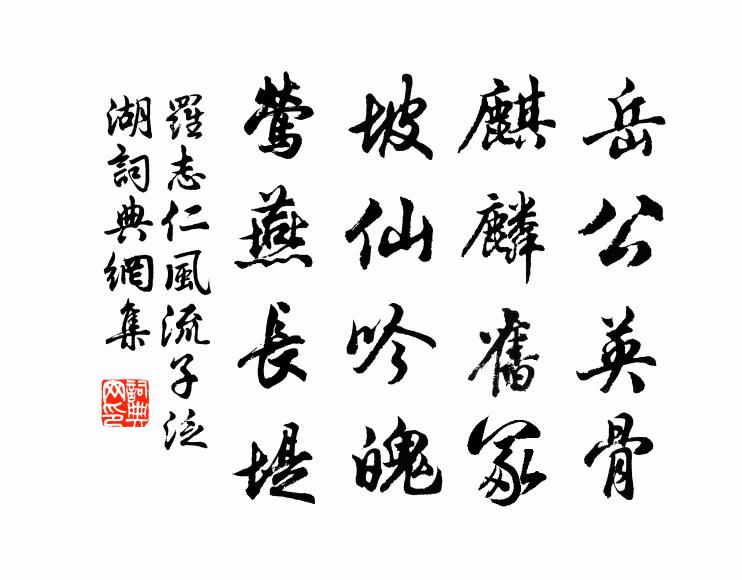 岳公英骨
麒麟舊冢
坡仙吟魄
鶯燕長堤
羅志仁風流子泛
湖詞典網集
詞典網印